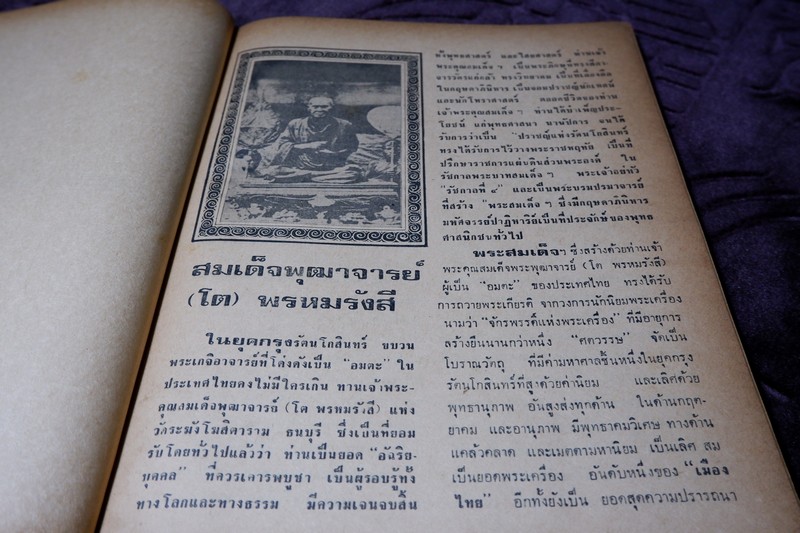 สมเด็จพุฒาจารย์
(โต) พรหมรังสี
ในยุคกรุงรัตนโกสินทร์ ขบวน
พระเกจิอาจารย์ที่โด่งดังเป็น "อมตะ" ใน
ประเทศไทยคงไม่มีใครเกิน ท่านเจ้าพระ-
คุณสมเด็จพุฒาจารย์ (โต พรหมรังสี) แห่ง
วัดระฆังโฆสิตาราม ธนบุรี ซึ่งเป็นที่ยอม
รับโดยทั่วไปแล้วว่า ท่านเป็นยอด "อัฉริย-
บุคคล" ที่ควรเคารพบูชา เป็นผู้รอบรู้ทั้ง
ทางโลกและทางธรรม มีความเจนจบสิ้น
ทั้งพุทธศาสตร์ และไสยศาสตร์ ท่านเจ้า
พระคุณสมเด็จฯ เป็นพระภิกษุที่ทรงสีลา-
จารวัตรเคร่งครัด พระวิทยาคม เป็นที่เลื่องลือ
ในกฤษดาภินิหาร เป็นยอดปราชญ์นักเทศน์
และนักโหราศาสตร์ ตลอดชีวิตของท่าน
เจ้าพระคุณสมเด็จฯ ท่านได้บำเพ็ญประ-
โยชน์ แด่พุทธศาสนา นานัปการ จนได้
รับการว่าเป็น "ปราชญ์แห่งรัตนโกสินทร์
ทรงได้รับการไว้วางพระราชหฤทัย เป็นที่
ปรึกษาราชการแผ่นดินส่วนพระองค์ ใน
รัชกาลพระบาทสมเด็จฯ พระเจ้าอยู่หัว
"รัชกาลที่ ๔" และเป็นพระบรมปรมาจารย์
ที่สร้าง "พระสมเด็จฯ ซึ่งมีกฤษดาภินิหาร
มหัศจรรย์ปาฏิหาริย์เป็นที่ประจักษ์ของพุทธ
ศาสนิกชนทั่วไป
พระสมเด็จฯ ซึ่งสร้างด้วยท่านเจ้า
พระคุณสมเด็จพระพุฒาจารย์ (โต พรหมรังสี)
ผู้เป็น "อมตะ" ของประเทศไทย ทรงได้รับ
การถวายพระเกียรติ จากวงการนักนิยมพระเครื่อง
นามว่า "จักรพรรดิ์แห่งพระเครื่อง" ที่มีอายุการ
สร้างยืนนานกว่าหนึ่ง "ศตวรรษ" จัดเป็น
โบราณวัตถุ ที่มีค่ามหาศาลชิ้นหนึ่งในยุคกรุง
รัตนโกสินทร์ที่สูงด้วยค่านิยม และเลิศด้วย
พุทธานุภาพ อันสูงส่งทุกด้าน ในด้านกฤต-
ยาคม และอานุภาพ มีพุทธาคมวิเศษ ทางด้าน
แคล้วคลาด และเมตตามหานิยม เป็นเลิศ สม
เป็นยอดพระเครื่อง อันดับหนึ่งของ "เมือง
ไทย" อีกทั้งยังเป็น ยอดสุดความปรารถนา